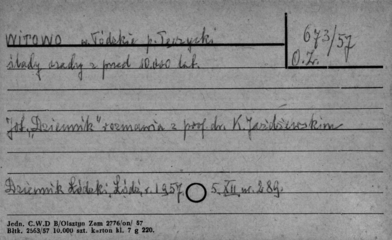 WITOWO w. Łódzkie p. Łęczycki
673/57
O.Z.
ślady osady z przed 10.000 lat.
"Dziennik" rozmawia z prof. dr. K. Jażdżewskim
Dziennik Łódzki, Łódź, r. 1957 5.XII nr. 289.
Jedn. C.W.D B/Olsztyn Zam 2776/on/ 57
Bltk. 2563/57 10.000 szt. karton kl. 7 g 220.